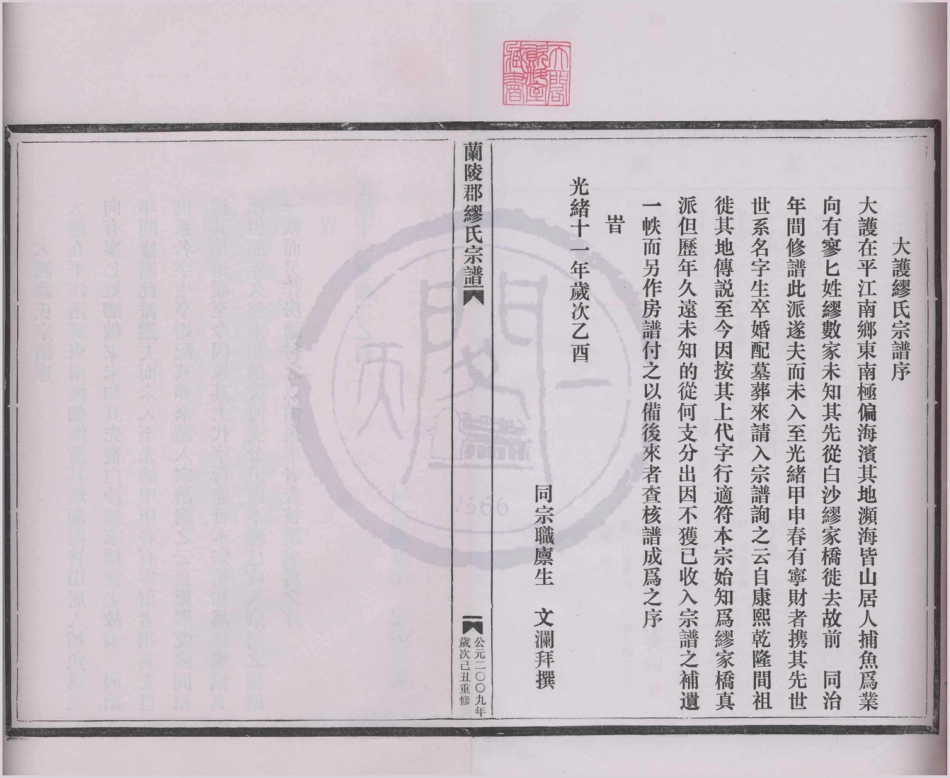 大護繆氏宗譜序
大護在平江南鄉東南極偏海濱其地瀕海皆山居人捕魚爲業
向有寥匕姓繆數家未知其先從白沙繆家橋徙去故前　同治
年間修譜此派遂夫而未入至光緒甲申春有寧財者携其先世
世系名字生卒婚配墓葬來請入宗譜詢之云自康熙乾隆間祖
徙其地傳説至今因按其上代字行適符本宗始知爲繆家橋真
派但歷年久遠未知的從何支分出因不獲已收入宗譜之補遺
一帙而另作房譜付之以備後來者查核譜成爲之序
旹
光緒十一年歲次乙酉
同宗職廪生　文瀾拜撰
蘭陵郡繆氏宗譜
公元二〇〇九年
歲次己丑重修
天一閣
1566